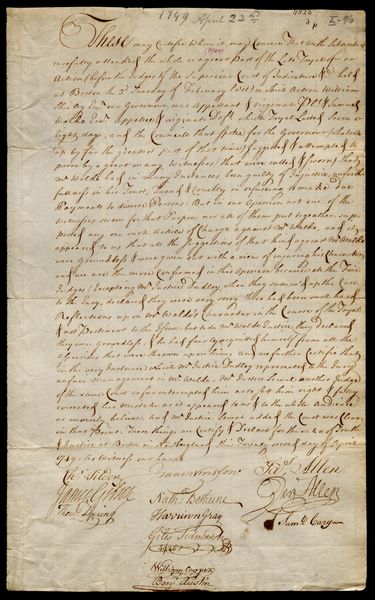 1749 April 22d
I-96
These may Certifie whom it may Concern That wee the Subscribers
carefully attended the whole or a great part of the Late Tryal of an
Action before the Judges of the Superior Court of Judicature &c. held
at Boston the 3d Tuesday of February last, in which Action William
Shirley Esqr. our Governour, was Appellant & original Plt. & Samuel
Waldo Esqr. Appellee & original Deft. which Tryal Lasted Seven or
Eight days, and the Councill that spoke for the Governour
up by far the greatest part of that time, suggested & attempted to
prove by a great many Witnesses that were called & sworn, that
Mr. Waldo had in many Instances been guilty of Injustice, unfaith
fullness in his Trust, fraud & Cruelty in refusing to make due
Payment to diverse Persons: But in our Opinion not one of the
Witnesses sworn for that Purpose, nor all of them put together, sup
ported any one such Article of Charge against Mr. Waldo, and it
appeared to us that all the suggestions of that kind against Mr. Waldo
were groundless & were given out with a view of injuring his Character,
and wee are the more Confirmed in this Opinion because all the Four
Judges (Excepting Mr. Justice Dudley) when they summed up the Case
to the Jury, declared they were very sorry there had been such hard
Reflections upon Mr. Waldo's Character in the Course of the Tryal
& not Pertinent to the Issue, but to do Mr. Waldo Justice, they declared
they were groundless, & he had fairly acquitted himself from all the
Aspersions that were thrown upon him; and we further Certifie that
in the very Instance which Mr. Justice Dudley represented to the Jury
unfair Management in Mr. Waldo, Mr. Justice Sewal another Judge
of the same Court
corrected his Mistake
and Mr. Justice Sewal added the Court was Clear
in that Point. These things we Certify & Declare for the sake of Truth
& Justice at Boston in New England this Twenty second day of April
1749. As Witness our hands
Isaac Winslow
Jas. Allen
James Griffin
Nathl. Bethune
Jer. Allen
Thoms. Dering
Harrison Gray
Saml. Cary
Giles
William Cooper
Benj. Austin